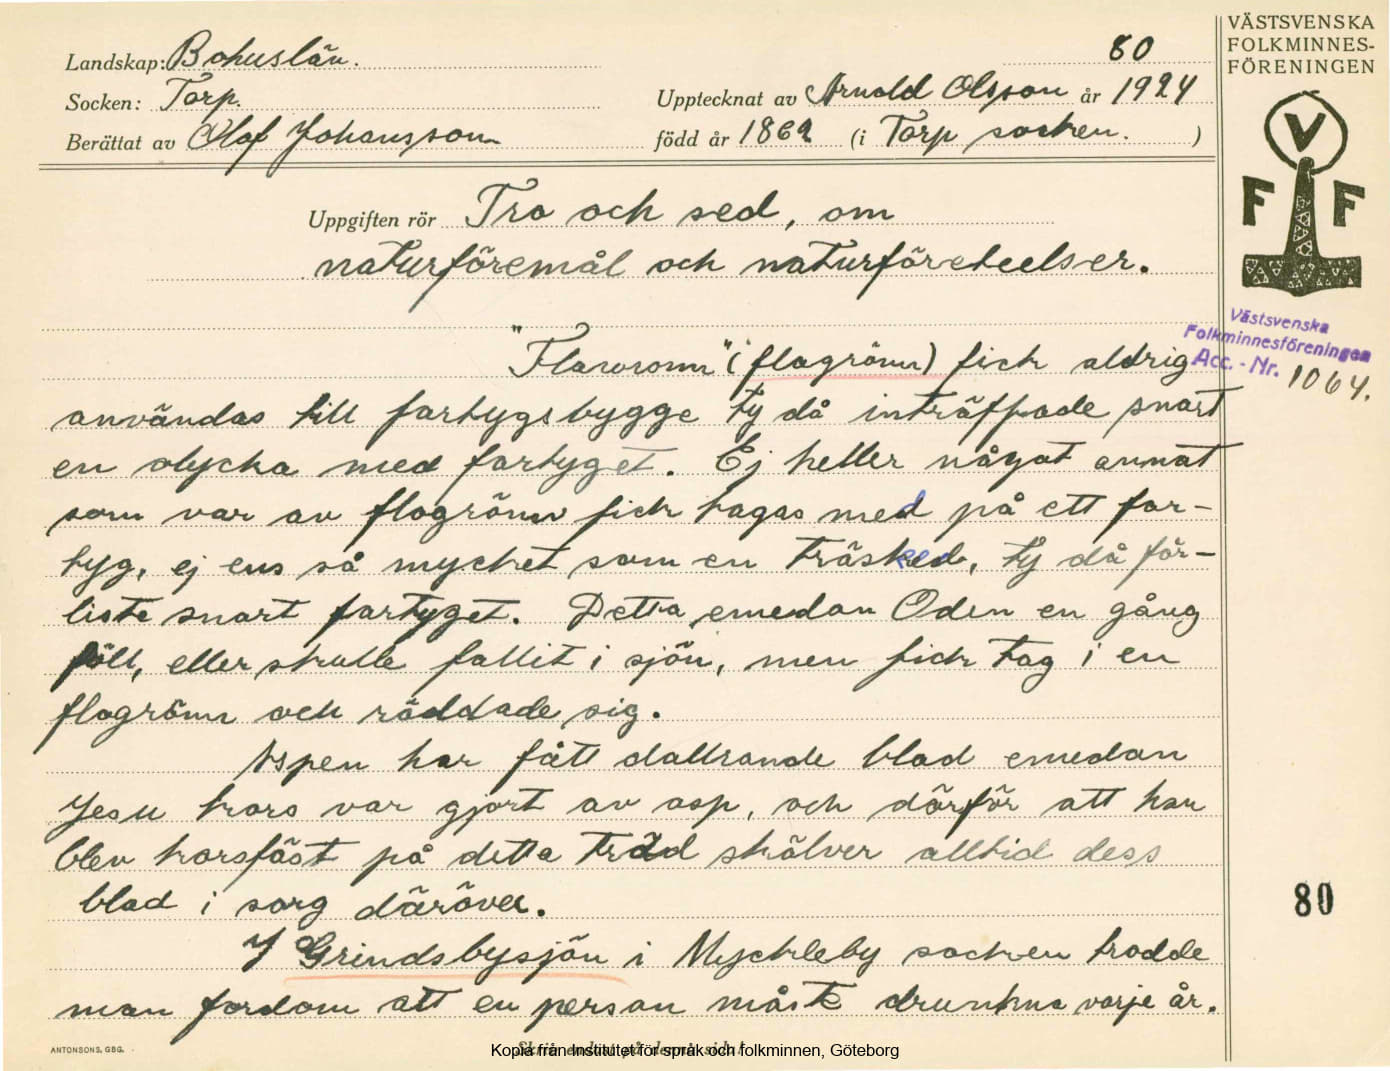 VÄSTSVENSKA
FOLKMINNES-
FÖRENINGEN
V
F F
Landskap: Bohuslän.
80
Socken: Torp.
Upptecknat av Arnold Olsson år 1924
Berättat av Olof Johansson
född år 1862 (i Torp socken. )
Uppgiften rör Tro och sed, om
naturföremål och naturföreteelser.
Västsvenska
Folkminnesföreningen
Acc. - Nr. 1064.
" " (flogrönn) fick aldrig
användas till fartygsbygge ty då inträffade snart
en olycka med fartyget. Ej heller något annat
som var av flogrönn fick tagas med på ett far-
tyg, ej ens så mycket som en träsked, ty då för-
liste snart fartyget. Detta emedan Oden en gång
föll, eller skulle fallit i sjön, men fick tag i en
flogrönn och räddade sig.
Aspen har fått dallrande blad emedan
Jesu kors var gjort av asp, och därför att han
blev korsfäst på detta träd skälver alltid dess
blad i sorg däröver.
80
I Grindsbysjön i Myckleby socken trodde
man fordom att en person måste drunkna varje år.
ANTONSONS, GBG.
Skriv endast på denna sida!
Kopia från Institutet för språk och folkminnen, Göteborg